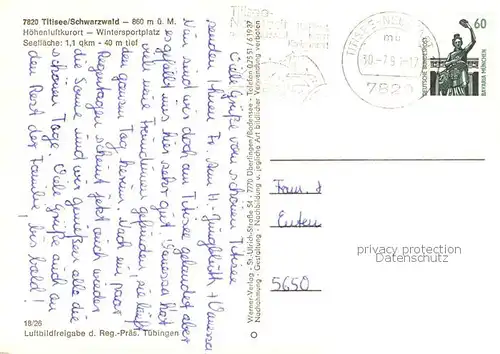 7820 Titisee/Schwarzwald – 860 m ü. M.
Höhenluftkurort – Wintersportplatz
Seefläche: 1,1 qkm – 40 m tief
Viele Grüße vom schönen Titisee
senden Ihnen Fr. Am H. Jungbluth + Vanessa
Nun sind wir doch am Titisee gelandet aber
es gefällt uns hier sehr gut. Vanessa hat
viele neue Freundinnen gefunden, sie läuft
den ganzen Tag herum. Nach ein paar
Regentagen scheint jetzt auch wieder
die Sonne und wir genießen alle die
schönen Tage. Viele Grüße auch an
den Rest der Familie, bis bald!
18/26
Luftbildfreigabe d. Reg.-Präs. Tübingen
Werner-Verlag - St.-Ulrich-Straße 54 - 7770 Überlingen/Bodensee - Telefon 07551/61927
Nachahmung - Gestaltung - Nachbildung u. jegliche Art bildlicher Verwendung verboten
Titisee-
TITISEE-NEU
mu
30.-7.9 -17
7820
60
DEUTSCHE BUNDESPOST
BAVARIA MÜNCHEN
Fam.
5650
privacy protection
Datenschutz